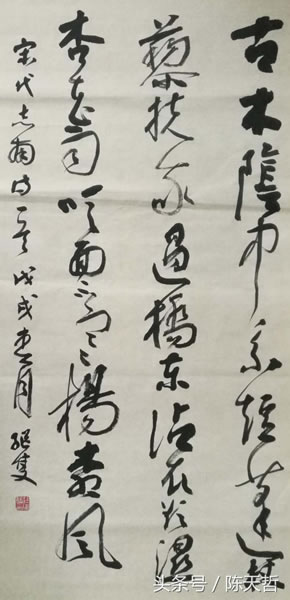 古木陰中系短篷杖
藜扶我過橋東沾衣欲濕
杏花雨吹面不寒楊柳風
宋代志南诗一首戊戌月继
头条号 / 陈天哲